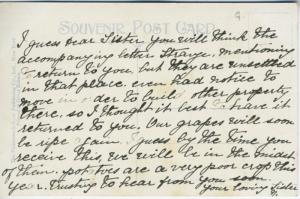 SOUVENIR POST CARD
I guess Dear Sister you will think the
accompanying letter Strange, mentioning
return to you, but they are unsettled
in that place, even had notice to
move in order to build other property
there, so I thought it best to have it
returned to you. Our grapes will soon
be ripe I am I guess by the time you
receive this, we will be in the midst
of them. potatoes are a very poor crop this
year. Trusting to hear from you soon.
Your loving Sister